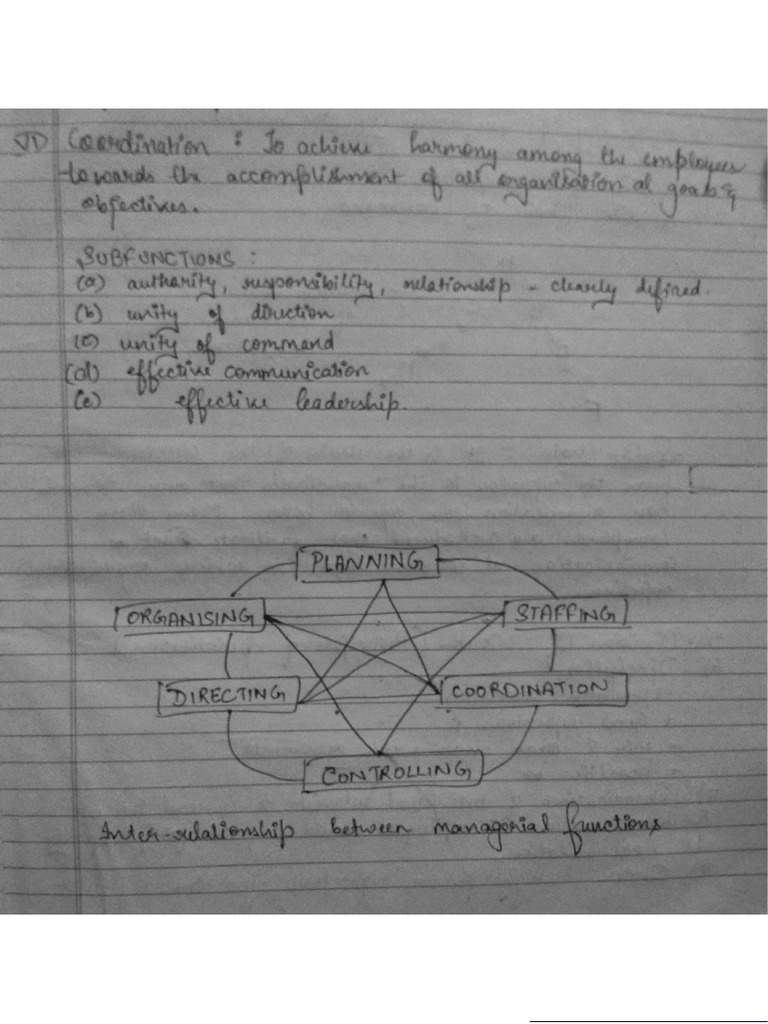 VI) Coordination : To achieve harmony among the employees
towards the accomplishment of all organisational goals &
objectives.
SUBFUNCTIONS :
(a) authority, responsibility, relationship - clearly defined.
(b) unity of direction
(c) unity of command
(d) effective communication
(e) effective leadership.
PLANNING
ORGANISING STAFFING
DIRECTING COORDINATION
CONTROLLING
Inter-relationship between managerial functions